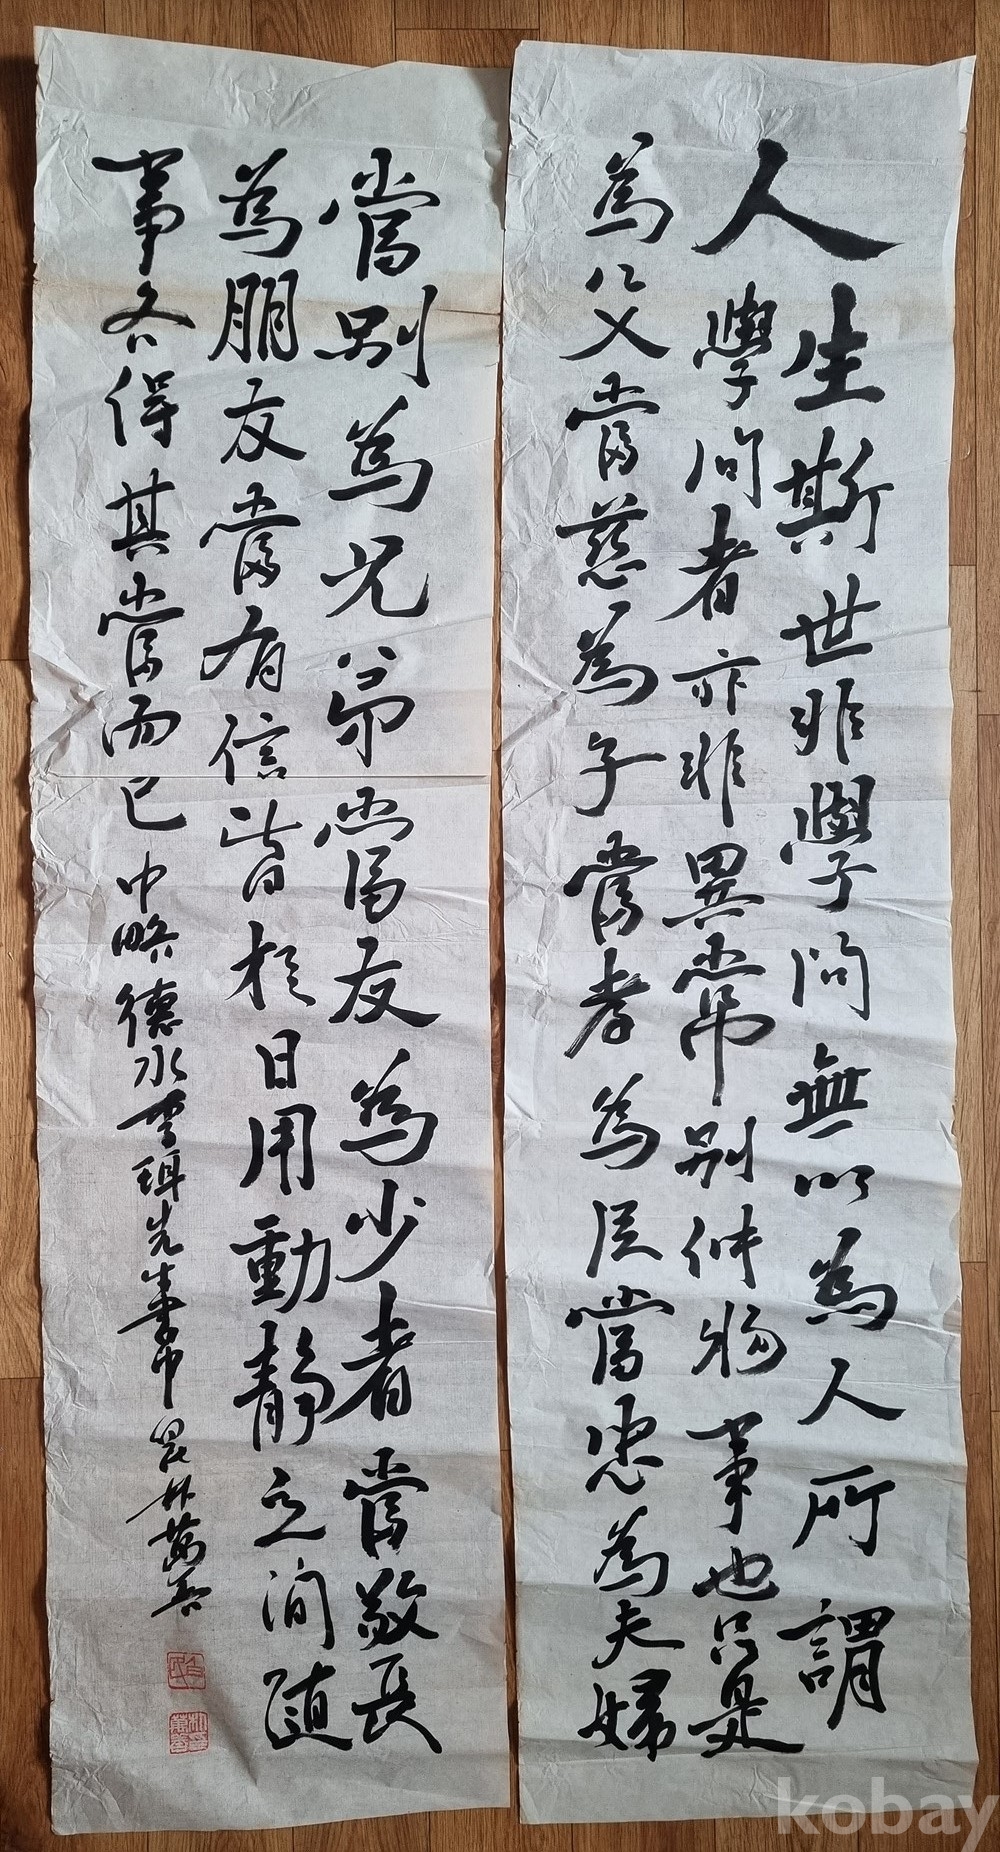 人生斯世非學問無以為人所謂
學問者亦非異常別件物事也只是
為父當慈為子當孝為臣當忠為夫婦
當別為兄弟當友為少者當敬長
為朋友當有信皆於日用動靜之間隨
事各得其當而已中略德水李珥先生書中
kobay